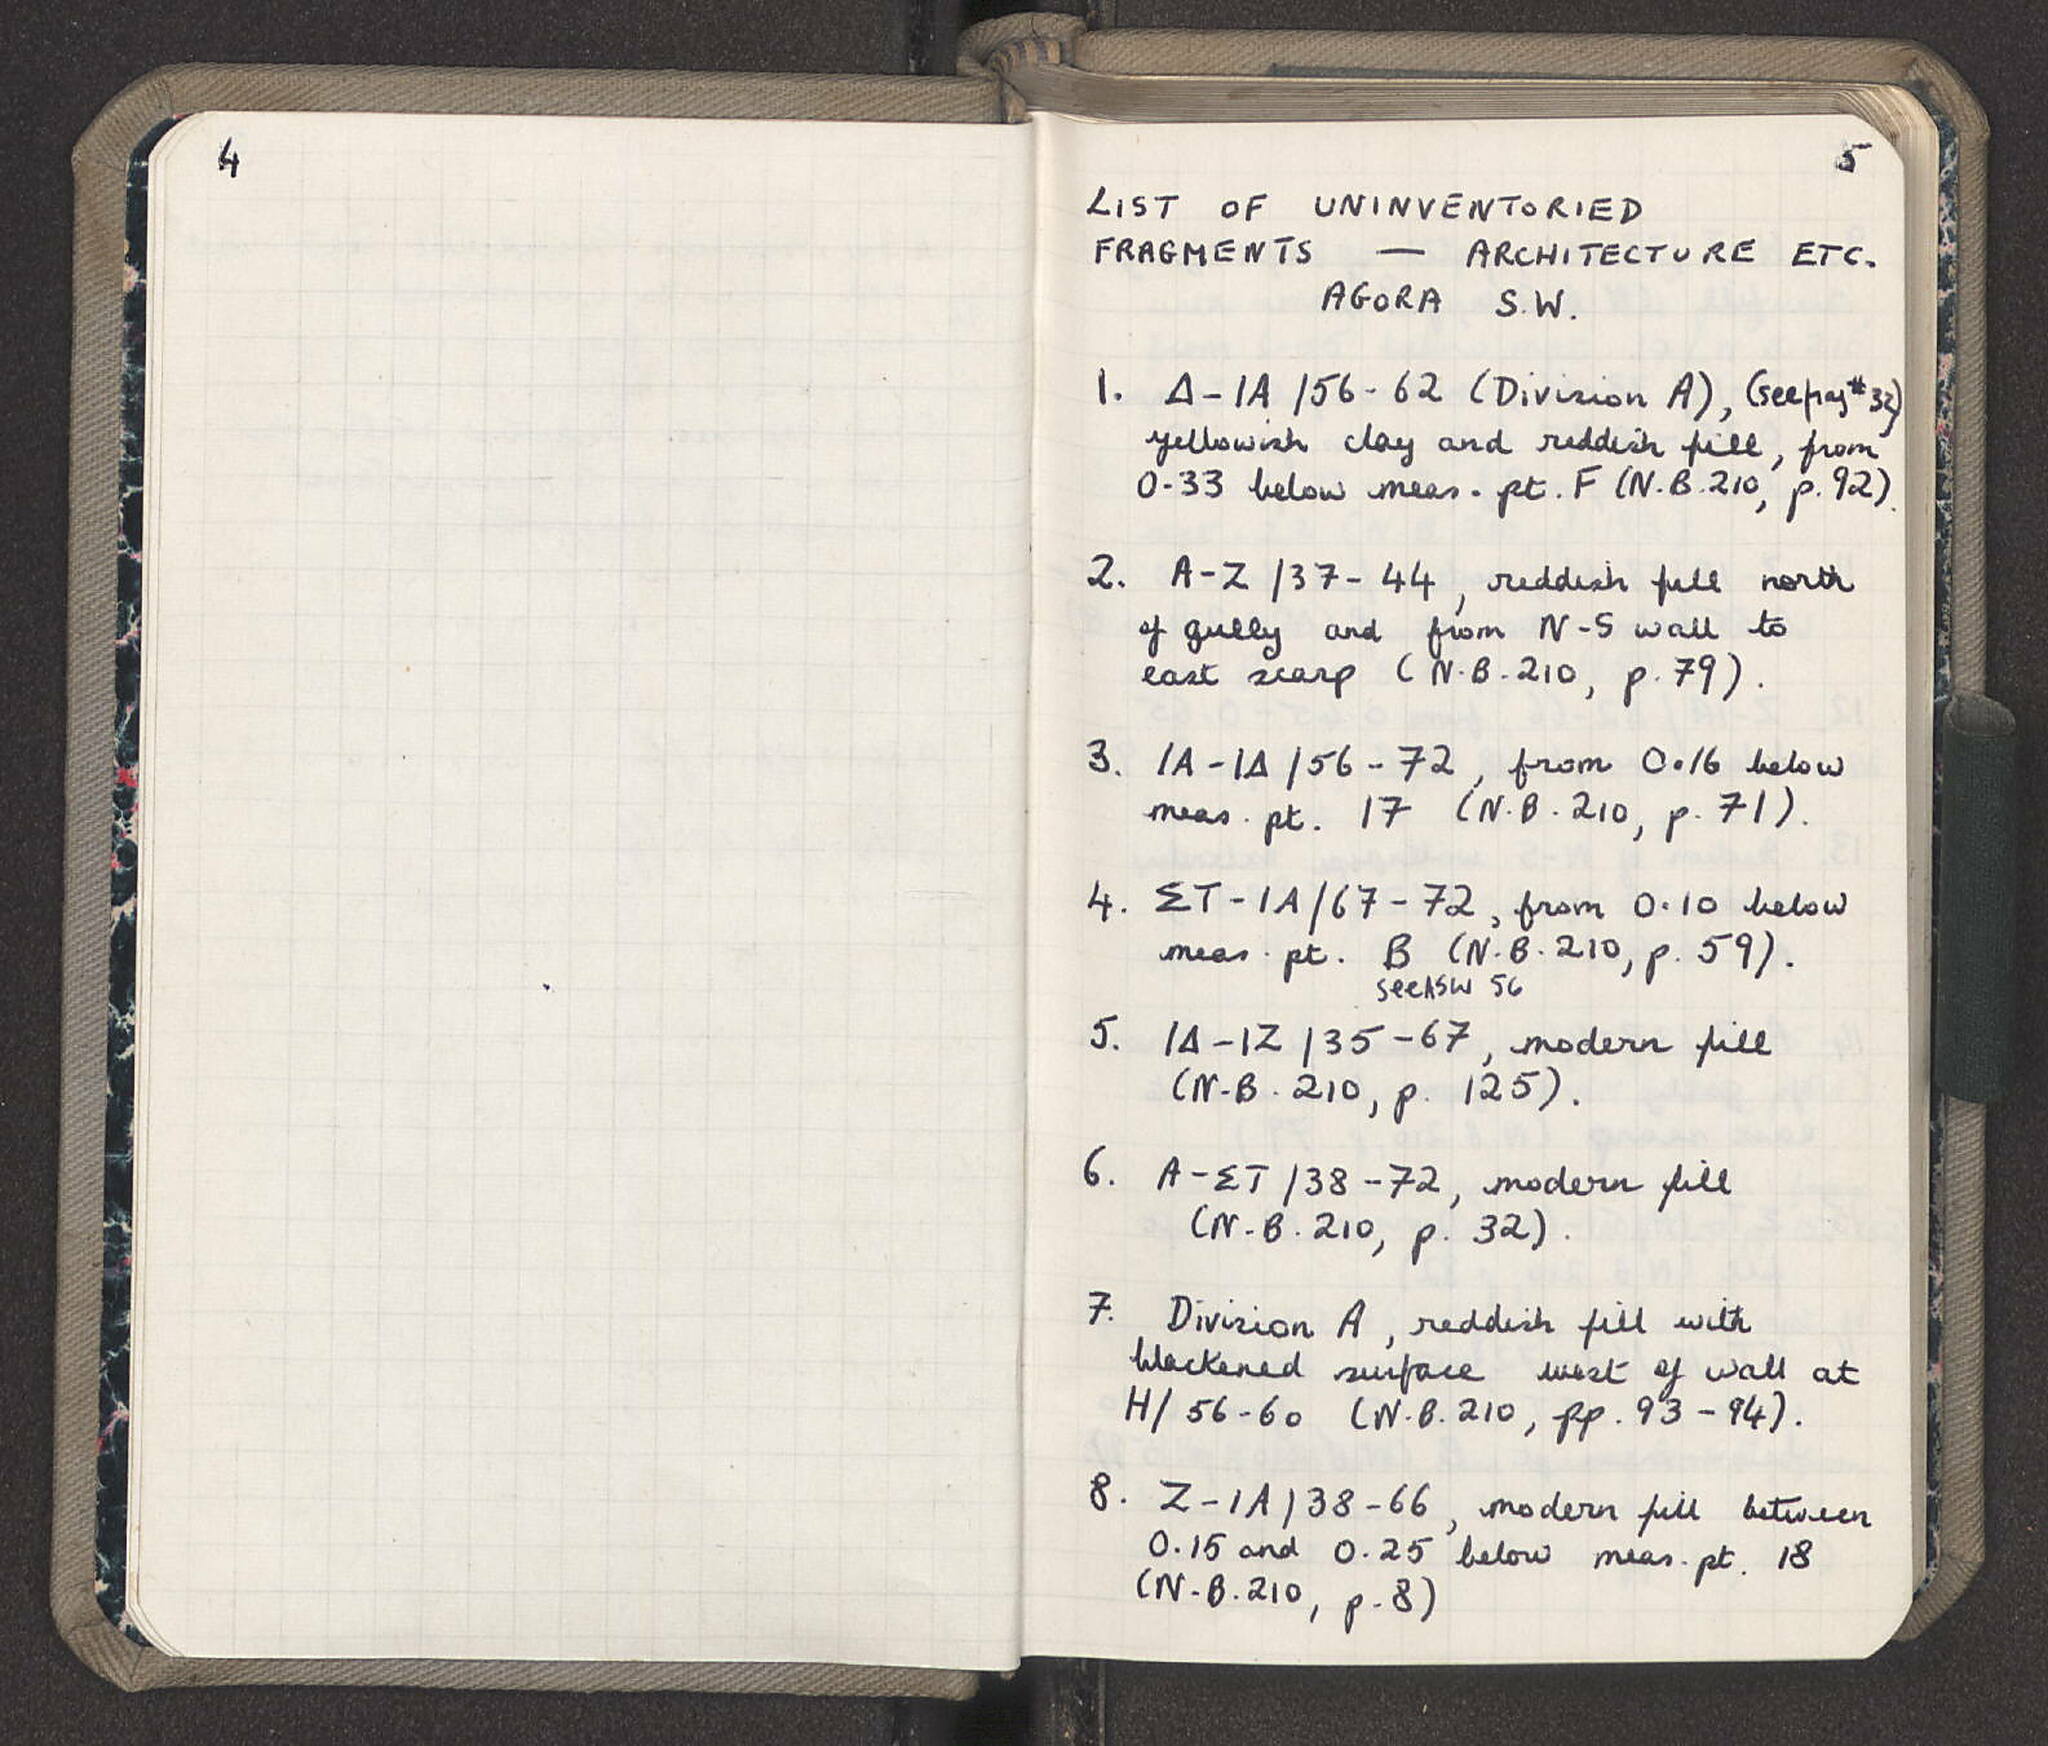 4
5
LIST OF UNINVENTORIED
FRAGMENTS — ARCHITECTURE ETC.
AGORA S.W.
1. Δ-ΙΑ/56-62 (Division A), (see frag # 32)
yellowish clay and reddish fill, from
0.33 below meas. pt. F (N.B. 210, p. 92).
2. Α-Ζ/37-44, reddish fill north
of gully and from N-S wall to
east scarp (N.B. 210, p. 79).
3. ΙΑ-ΙΔ/56-72, from 0.16 below
meas. pt. 17 (N.B. 210, p. 71).
4. ΣΤ-ΙΑ/67-72, from 0.10 below
meas. pt. B (N.B. 210, p. 59).
see ASW 56
5. ΙΔ-ΙΖ/35-67, modern fill
(N.B. 210, p. 125).
6. Α-ΣΤ/38-72, modern fill
(N.B. 210, p. 32).
7. Division A, reddish fill with
blackened surface west of wall at
H/56-60 (N.B. 210, pp. 93-94).
8. Ζ-ΙΑ/38-66, modern fill between
0.15 and 0.25 below meas. pt. 18
(N.B. 210, p. 8)